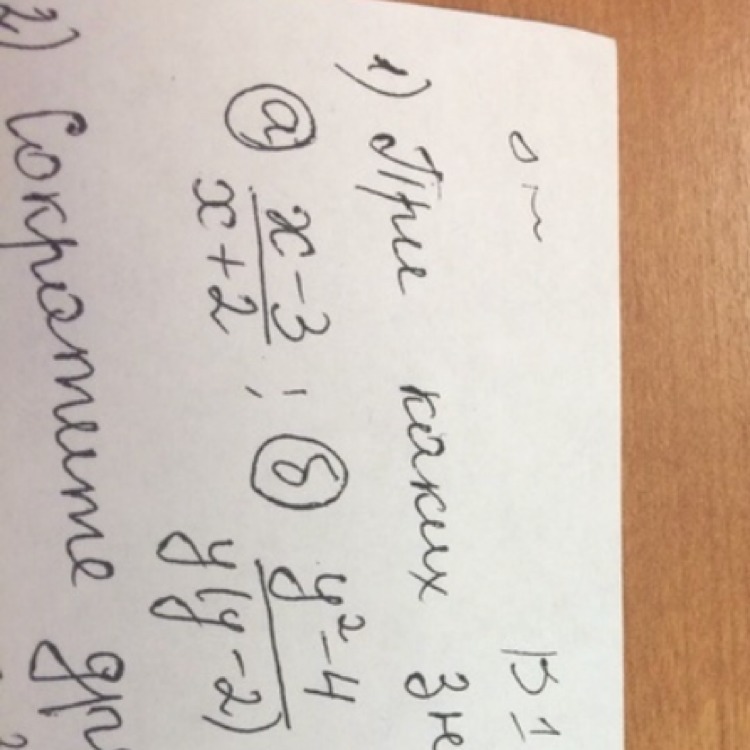 В 1
1) При каких зн
а) x-3/x+2 ; б) y²-4/y(y-2)
2) Сократите др